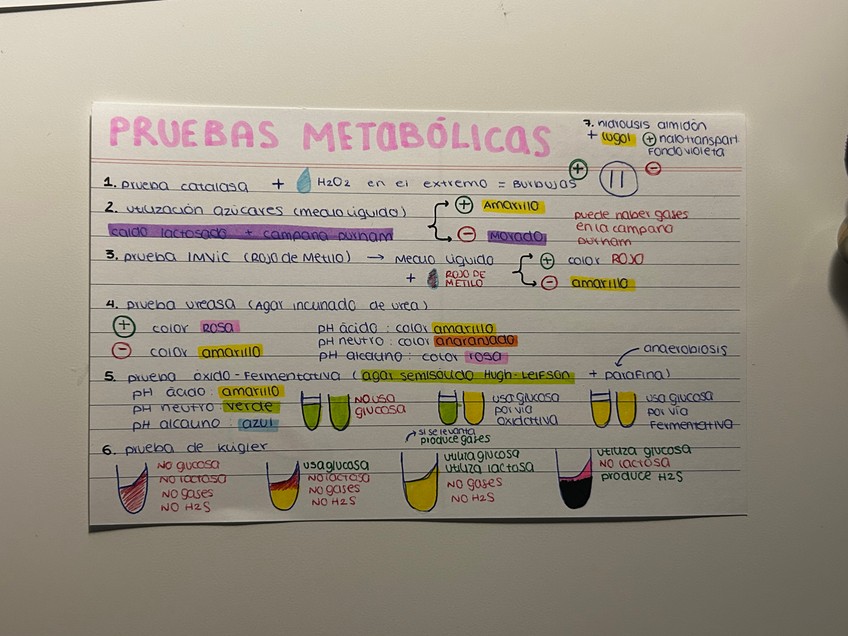 PRUEBAS METABÓLICAS
7. hidrólisis almidón
+ lugol ⊕ halo transpart.
⊖ Fondo violeta
1. prueba catalasa + H2O2 en el extremo = Burbujas
2. utilización azúcares (medio líquido)
caldo lactosado + campana Durham
⊕ Amarillo
⊖ Morado
puede haber gases
en la campana
Durham
3. prueba IMViC (ROJO de Metilo) → Medio líquido
+ ROJO DE
METILO
⊕ color ROJO
⊖ amarillo
4. prueba ureasa (Agar inclinado de urea)
⊕ color rosa
⊖ color amarillo
pH ácido : color amarillo
pH neutro : color anaranjado
pH alcalino : color rosa
5. prueba óxido-Fermentativa (agar semisólido Hugh-Leifson + parafina)
anaerobiosis
pH ácido : amarillo
pH neutro : verde
pH alcalino : azul
NO usa
glucosa
usa glucosa
por vía
oxidativa
usa glucosa
por vía
Fermentativa
6. prueba de kligler
si se levanta
produce gases
NO glucosa
NO lactosa
NO gases
NO H2S
usa glucosa
NO lactosa
NO gases
NO H2S
utiliza glucosa
utiliza lactosa
NO gases
NO H2S
utiliza glucosa
NO lactosa
produce H2S